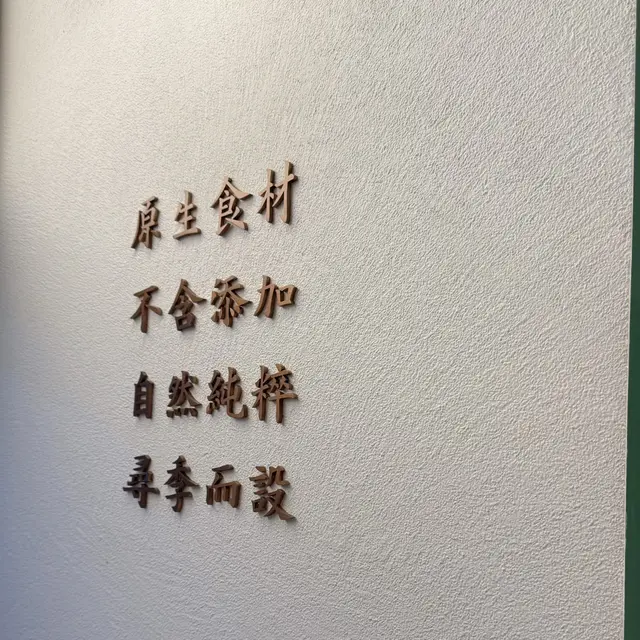 原生食材
不含添加
自然純粹
尋季而設